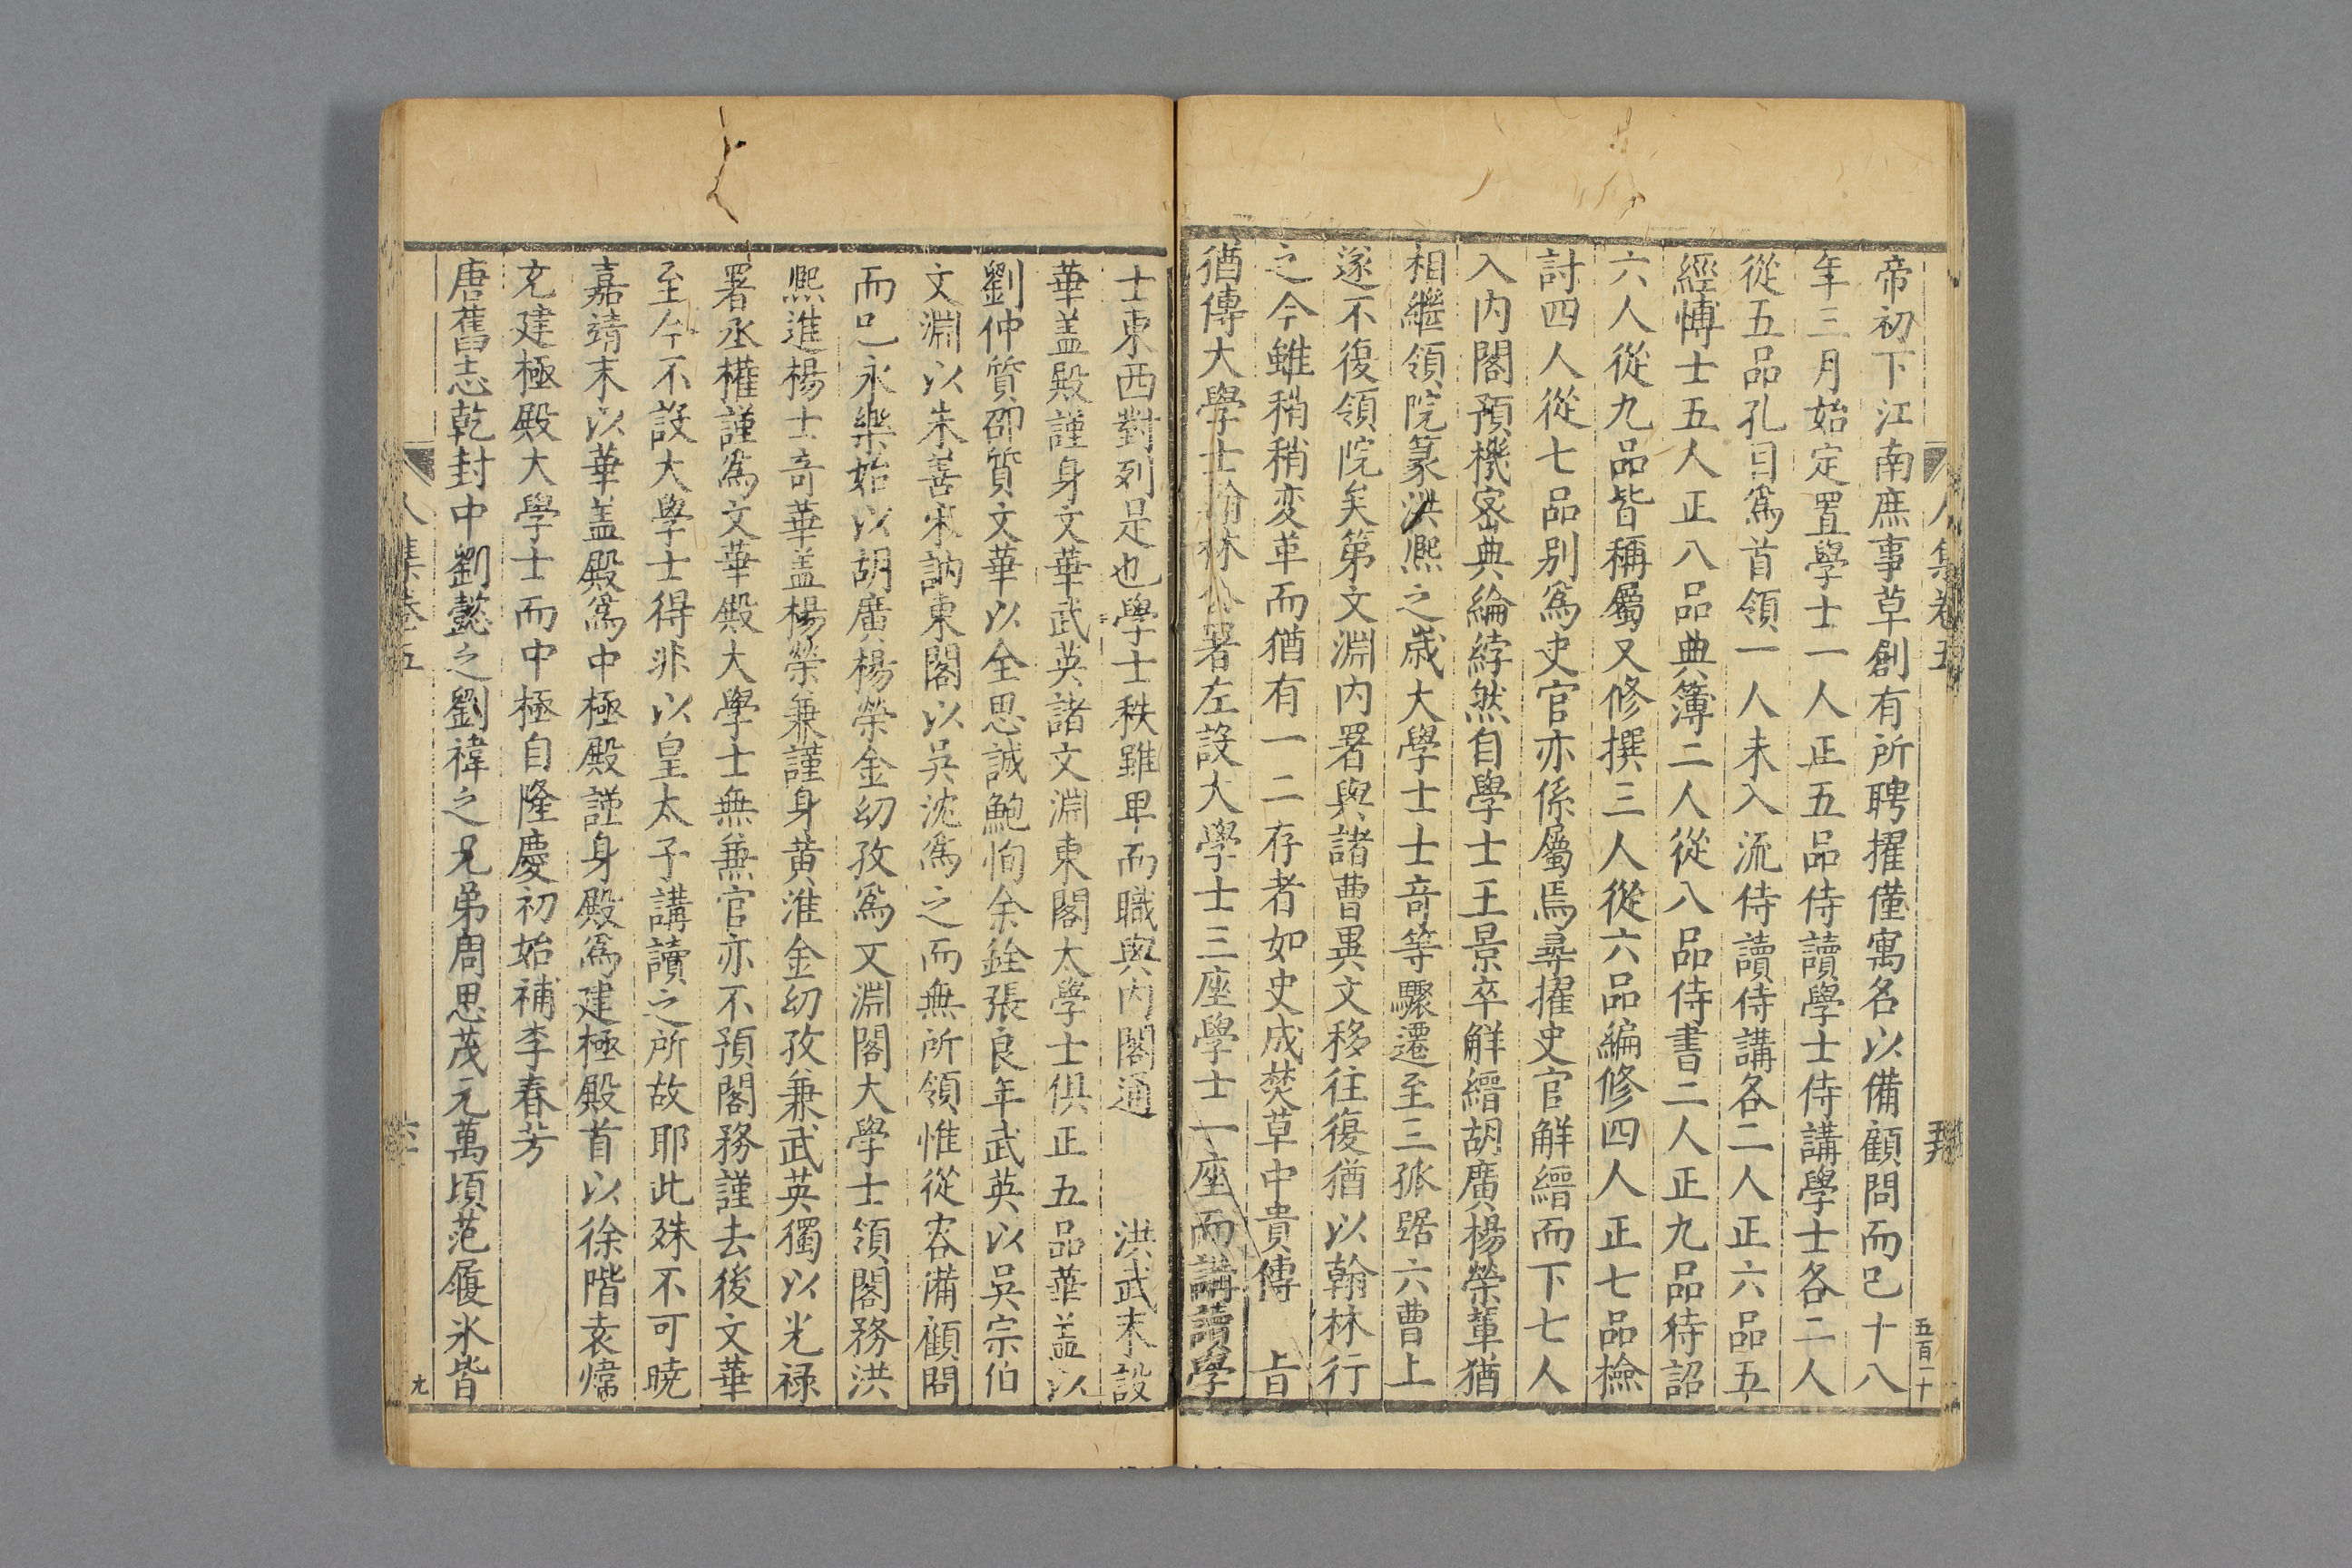 帝初下江南庶事草創有所聘擢僅寓名以備顧問而已十八
年三月始定置學士一人正五品侍讀學士侍講學士各二人
從五品孔目爲首領一人未入流侍讀侍講各二人正六品五
經博士五人正八品典簿二人從八品侍書二人正九品待詔
六人從九品皆稱屬又修撰三人從六品編修四人正七品檢
討四人從七品别爲史官亦係屬焉尋擢史官解縉而下七人
入内閣預機密典綸綍然自學士王景卒解縉胡廣楊榮輩猶
相繼領院篆洪熈之歲大學士士竒等驟遷至三孤踞六曹上
遂不復領院矣第文淵内署與諸曹異文移往復猶以翰林行
之今雖稍稍変革而猶有一二存者如史成焚草中貴傳 上旨
猶傳大學士翰林公署左設大學士三座學士一座而講讀學
五百一十
士東西對列是也學士秩雖卑而職與内閣通 洪武末設
華盖殿謹身文華武英諸文淵東閣大學士俱正五品華盖以
劉仲質邵質文華以全思誠鮑恂余銓張良年武英以吳宗伯
文淵以朱善宋訥東閣以吳沈爲之而無所領惟從容備顧問
而已永樂始以胡廣楊榮金幼孜爲文淵閣大學士領閣務洪
熈進楊士竒華盖楊榮兼謹身黄淮金幼孜兼武英獨以光禄
署丞權謹爲文華殿大學士無兼官亦不預閣務謹去後文華
至今不設大學士得非以皇太子講讀之所故耶此殊不可曉
嘉靖末以華盖殿爲中極殿謹身殿爲建極殿首以徐階袁煒
充建極殿大學士而中極自隆慶初始補李春芳
唐舊志乾封中劉懿之劉禕之兄弟周思茂元萬頃范履氷皆
集卷五